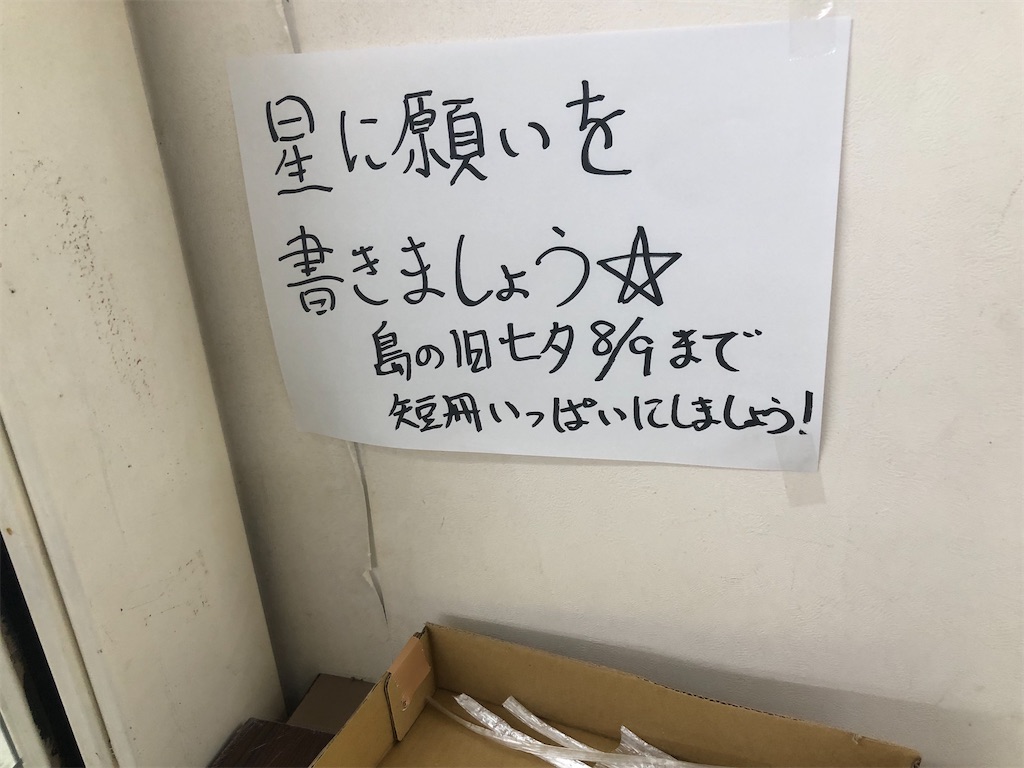 星に願いを
書きましょう☆
島の旧七夕 8/9まで
短冊いっぱいにしましょう!